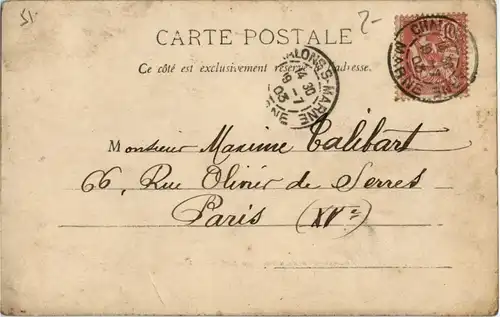 51-
2-
CARTE POSTALE
Ce côté est exclusivement réservé à l'adresse.
CHALONS-S-MARNE
14 30
6 -7
03
MARNE
Monsieur Maxime Talibart
66, Rue Olivier de Serres
Paris (XVe)